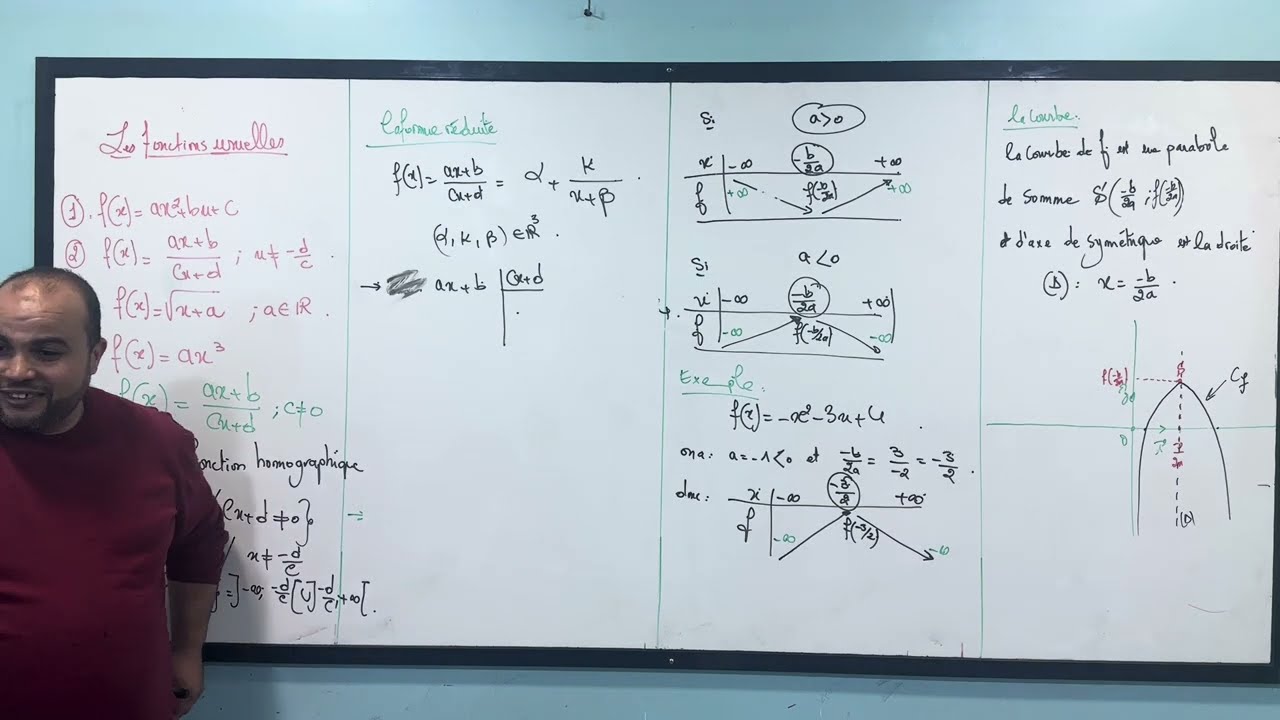 Les fonctions usuelles
① . f(x) = ax²+bx+c
② f(x) = (ax+b)/(cx+d) ; x ≠ -d/c .
f(x) = √(x+a) ; a ∈ ℝ .
f(x) = ax³
f(x) = (ax+b)/(cx+d) ; c ≠ 0
fonction homographique
cx+d ≠ 0}
x ≠ -d/c
= ]-∞; -d/c[ ∪ ]-d/c, +∞[ .
La forme réduite
f(x) = (ax+b)/(cx+d) = α + k/(x+β) .
(α, k, β) ∈ ℝ³ .
→ ax+b | cx+d
Si a>0
x | -∞ -b/2a +∞
f | +∞ f(-b/2a) +∞
Si a<0
x | -∞ -b/2a +∞
f | -∞ f(-b/2a) -∞
Exemple.
f(x) = -x²-3x+4 .
on a: a=-1<0 et -b/2a = 3/-2 = -3/2 .
donc: x | -∞ -3/2 +∞
f | -∞ f(-3/2) -∞
la courbe:
la courbe de f est une parabole
de somme S(-b/2a ; f(-b/2a))
et d'axe de symétrique est la droite
(D): x = -b/2a .
f(-b/2a)
S
Cf
0
-b/2a
(D)